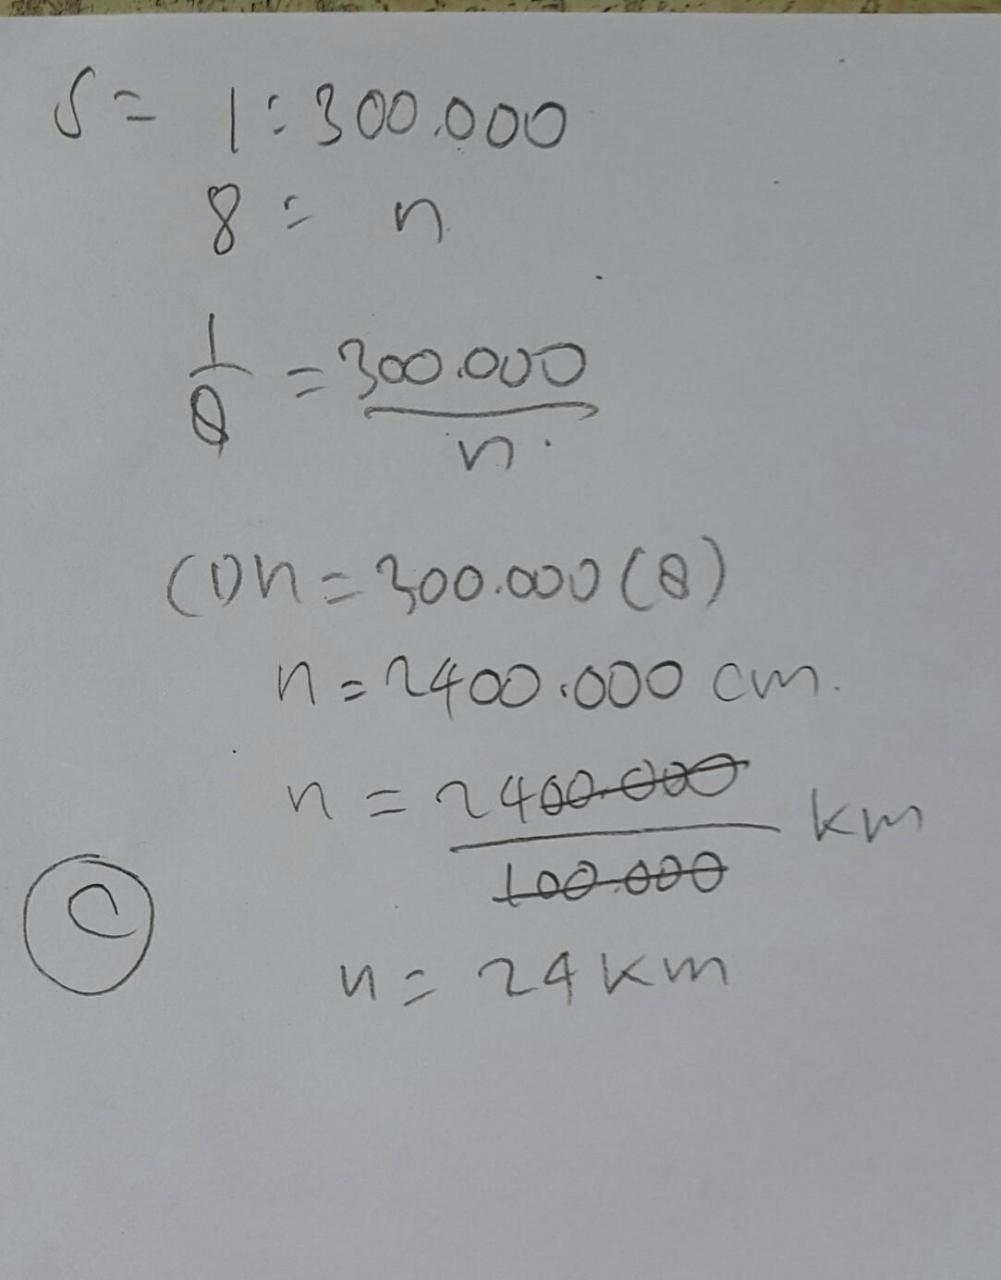 S = 1 : 300.000
8 = n
1/8 = 300.000/n.
(1)n = 300.000 (8)
n = 2400.000 cm.
n = 2400.000/100.000 km
C
n = 24 km